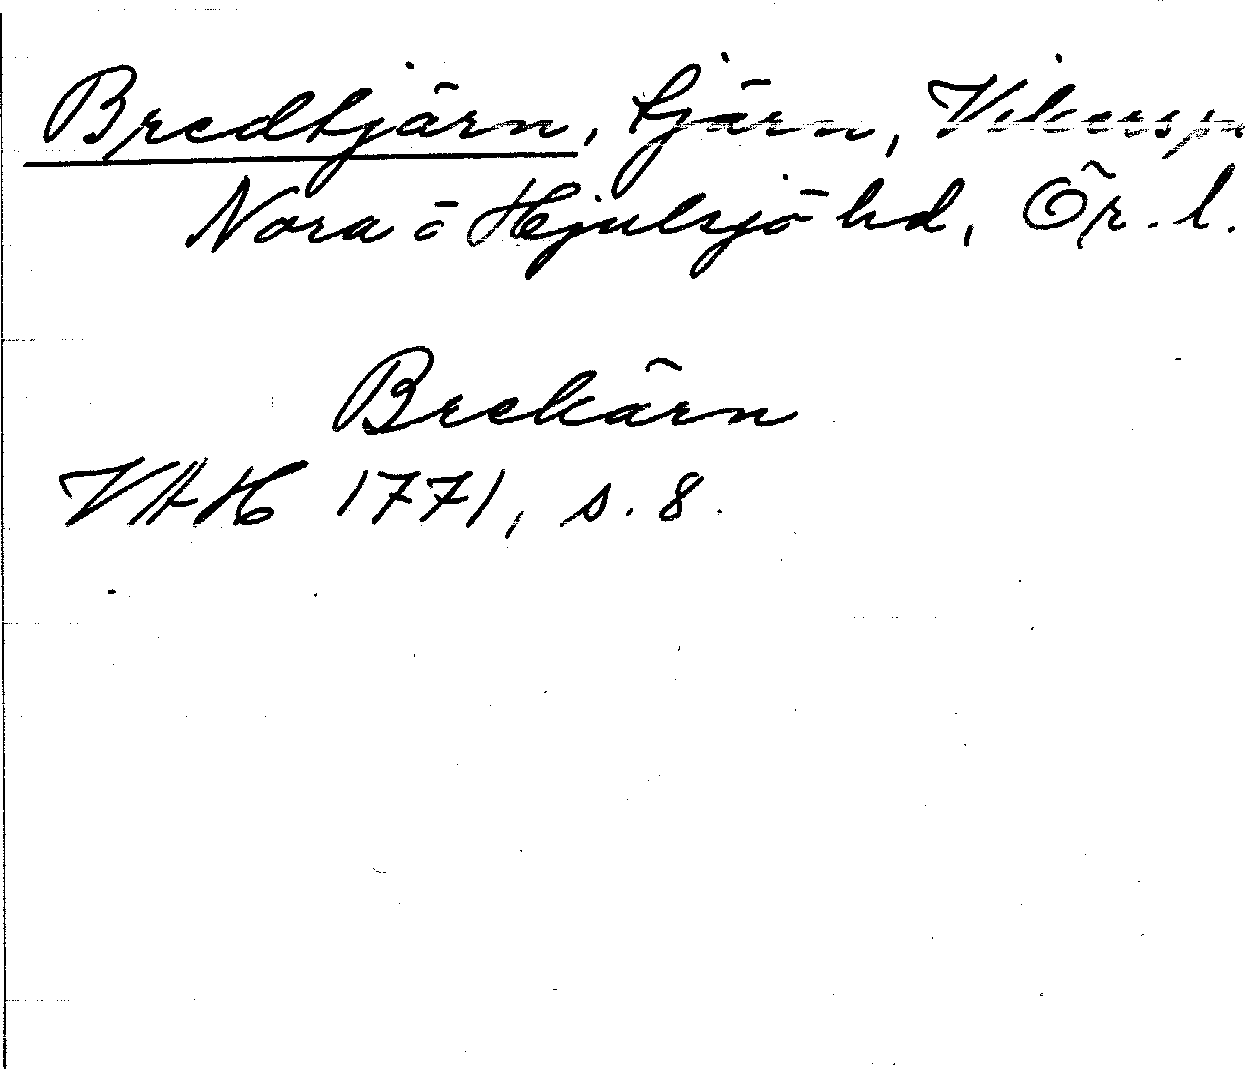 Bredtjärn, tjärn, Vikers sn
Nora o Hjulsjö hd, Ör. l.
Brekärn
VAH 1771, s. 8.